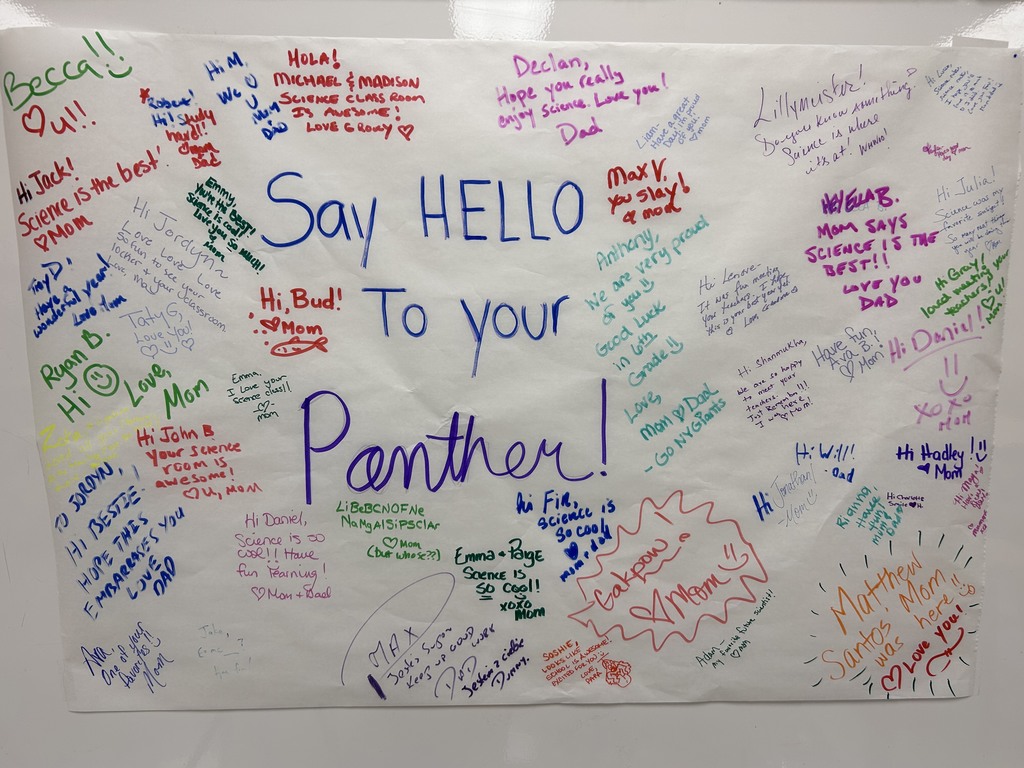 Say HELLO
To your
Panther!
Becca!!
♡ u!!
Hi M,
We ♡ U
Mum
DAD
HOLA!
MICHAEL & MADISON
SCIENCE CLASS ROOM
IS AWESOME!
LOVE GROWY ♡
Declan,
Hope you really
enjoy science. Love you!
Dad
Liam-
Have a great
Day! I'm proud
of you!!
♡ mom
Lillymuster!
Do you know something?
Science is where
it's at!
Robert!
Hi! Study
hard!!
♡ Mom
Dad
Hi Jack!
Science is the best!
♡ Mom
Emmy,
You're the Best!
Science is cool!
Love you so
much!!
Mom
Hi Jordynn
Love Love Love
So fun to see your
locher & your classroom
Love Mom
Max V,
you slay!
♡ mom
HEY ELLA B.
MOM SAYS
SCIENCE IS THE
BEST!!
LOVE YOU
DAD
Hi Julia!
Science was my
favorite subject!
♡ Mom
Troy D!
Have a
wonderful year!
Love Mom
Taty G,
Love you!
Hi, Bud!
♡ Mom
Anthony,
We are very proud
of you!!
Good Luck
in 6th
Grade!!
Love,
Mom ♡ Dad
- Go NY Giants
Hi Lenore-
It was fun meeting
your teachers. I hope
this is your best year yet.
Hi Gray!
loved meeting your
teachers!
♡ Mom
Hi Daniel!
XOXO
Mom
Ryan B.
Hi ☺
Love,
Mom
Emma,
I love your
science class!!
♡-
mom
Hi Shanmukha,
We are so happy
to meet your
teachers.
Just Remember!!!
I was here!
♡ Mom!
Have fun,
Ava B.!
♡ Mom
Hi John B
your science
room is
awesome!
♡ u, mom
TO JORDYN,
HI BESTIE!
HOPE THIS
EMBARRASES YOU
LOVE
DAD
Hi Daniel,
Science is so
cool!! Have
fun learning!
♡ Mom + Dad
LiBeBCNOFNe
NaMgAlSiPSClAr
♡ Mom
(but whose??)
Emma + Paige
Science is
so cool!!
xoxo
Mom
Hi FIR,
science is
so cool
♡
mom & dad
Gatpow
♡ Mom
Hi Will!
- Dad
Hi Jonathan!
- Mom
Hi Hadley!
♡ Mom
Rianna,
Have
fun!
Mom &
Dad
Hi Charlotte
Science ♡
Ava
One of your
favorites!!
Mom
MAX
Keep up good work
DAD
SOPHIE,
LOOKS LIKE
SCHOOL IS AWESOME!
EXCITED FOR YOU
LOVE,
PAPA
Adam -
My favorite future scientist!
♡ Mom
Matthew
Santos' Mom
was here!!
♡ Love you!